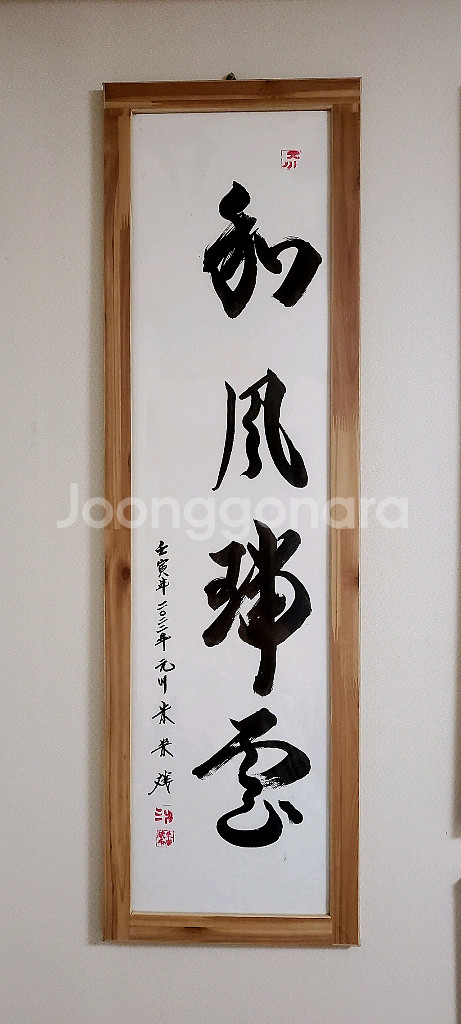 和風瑞雲
壬寅年 二〇二二年 元川
Joonggonara